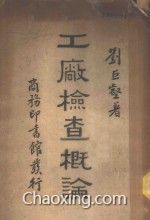 劉巨壑著
工廠檢查概論
商務印書館發行
www.1000xx.com